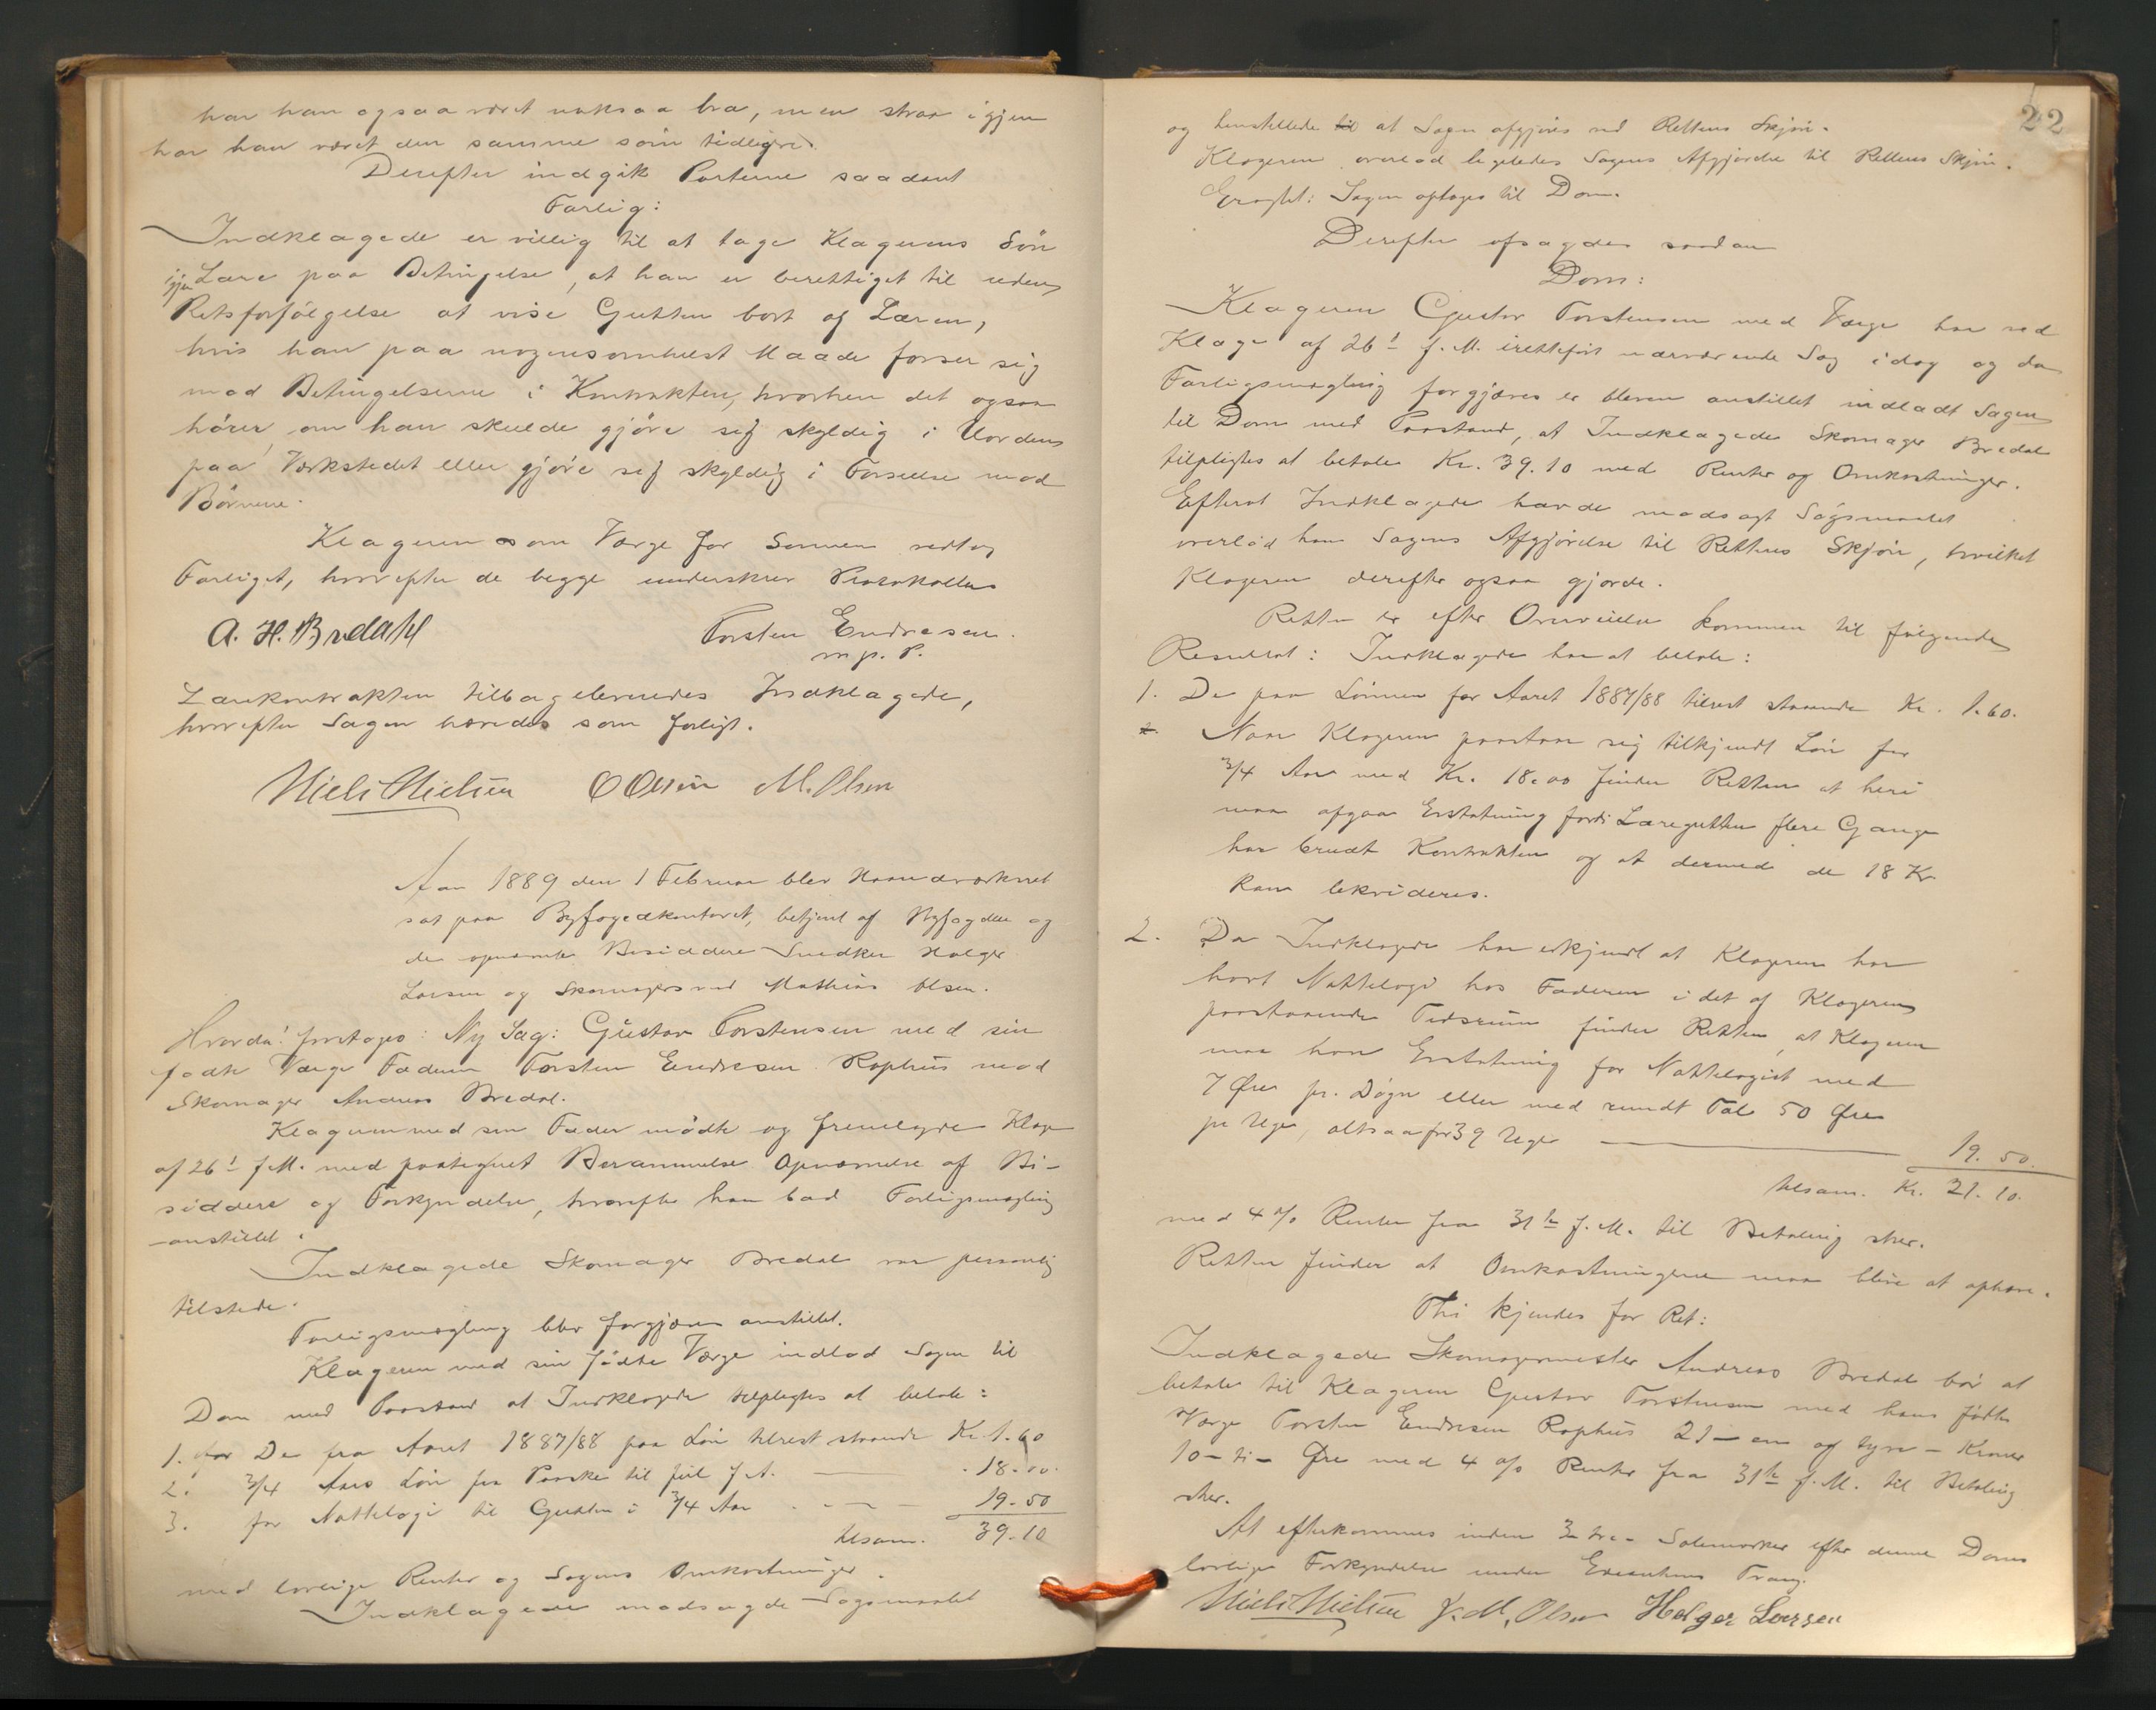 har han ogsaa været noksaa bra, men strax igjen
har han været den samme som tidligere.
Derefter indgik Parterne saadant
Forlig:
Indklagede er villig til at tage Klagerens Søn
igjen Lære paa Betingelse, at han er berettiget til uden
Retsforfølgelse at vise Gutten bort af Læren,
hvis han paa nogensomhelst Maade forser sig
mod Betingelserne i Kontrakten, hvorhen det ogsaa
hører, om han skulde gjøre sig skyldig i Uorden
paa Værkstedet eller gjøre sig skyldig i Forseelse mod
Børnene.
Klageren som Værge for Sønnen vedtog
Forliget, hvorefter de begge underskrev Protokollen
A. H. Bredahl Torsten Endresen.
m. p. P.
Lærekontrakten tilbageleveredes Indklagede,
hvorefter Sagen hævedes som forligt.
Niels Nielsen O Olsen M. Olsen
Aar 1889 den 1 Februar blev Haandværksret
sat paa Byfogedkontoret, betjent af Byfogden og
de opnævnte Bisiddere Snedker Holger
Larsen og Skomagersvend Mathias Olsen.
Hvorda! foretoges: Ny Sag: Gustav Torstensen med sin
fødte Værge Faderen Torsten Endresen Rophus mod
Skomager Andreas Bredal.
Klageren med sin Fader mødte og fremlagde Klage
af 26' f. M. med paategnet Berammelse Opnævnelse af Bi-
siddere og Forkyndelse, hvorefter han bad Forligsmægling
anstillet.
Indklagede Skomager Bredal var personlig
tilstede.
Forligsmægling blev forgjæves anstillet.
Klageren med sin fødte Værge indlod Sagen til
Dom med Paastand at Indklagede tilpligtes at betale:
1. for De fra Aaret 1887/88 paa Løn tilrest staaende Kr. 1.60
2. 3/4 Aars Løn fra Paaske til Juil f. A. — 18.00.
3. for Natteloge til Gutten i 3/4 Aar — 19.50
tilsam. 39.10
med lovlige Renter og Sagens Omkostninger.
Indklagede modsagde Søgsmaalet
22
og henstillede til at Sagen afgjøres ved Rettens Skjøn.
Klageren overlod ligeledes Sagens Afgjørelse til Rettens Skjøn.
Eragtet: Sagen optages til Dom.
Derefter afsagdes saadan
Dom:
Klageren Gustav Torstensen med Værge har ved
Klage af 26' f. M. iretteført nærværende Sag idag og da
Forligsmægling forgjæves er bleven anstillet indladt Sagen
til Dom med Paastand, at Indklagede Skomager Bredal
tilpligtes at betale Kr. 39.10 med Renter og Omkostninger.
Efterat Indklagede havde modsagt Søgsmaalet
overlod han Sagens Afgjørelse til Rettens Skjøn, hvilket
Klageren derefter ogsaa gjorde.
Retten er efter Overveielse kommen til følgende
Resultat: Indklagede har at betale:
1. De paa Lønnen for Aaret 1887/88 tilrest staaende Kr. 1.60.
2. Naar Klageren paastaar sig tilkjendt Løn for
3/4 Aar med Kr. 18.00 finder Retten at heri
maa afgaa Erstatning fordi Læregutten flere Gange
har brudt Kontrakten og at dermed de 18 Kr
kan likvideres.
2. Da Indklagede har erkjendt at Klageren har
havt Natteloge hos Faderen i det af Klageren
paastaaende Tidsrum finder Retten, at Klageren
maa have Erstatning for Nattelogiet med
7 Øre pr. Døgn eller med rundt Tal 50 Øre
pr Uge, altsaa for 39 Uger — 19.50.
tilsam. Kr. 21.10.
med 4 % Renter fra 31te f. M. til Betaling sker.
Retten finder at Omkostningerne maa blive at ophæve.
Thi kjendes for Ret:
Indklagede Skomagermester Andreas Bredal bør at
betale til Klageren Gustav Torstensen med hans fødte
Værge Torsten Endresen Rophus 21 - en og tyve - Kroner
10 - ti - Øre med 4 % Renter fra 31te f. M. til Betaling
sker.
At efterkommes inden 3 - tre - Solemærker efter denne Doms
lovlige Forkyndelse under Executions Tvang.
Niels Nielsen J. M. Olsen Holger Larsen